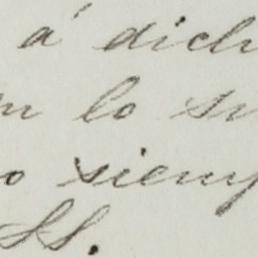 á dich
n lo su
o siemp
SS.